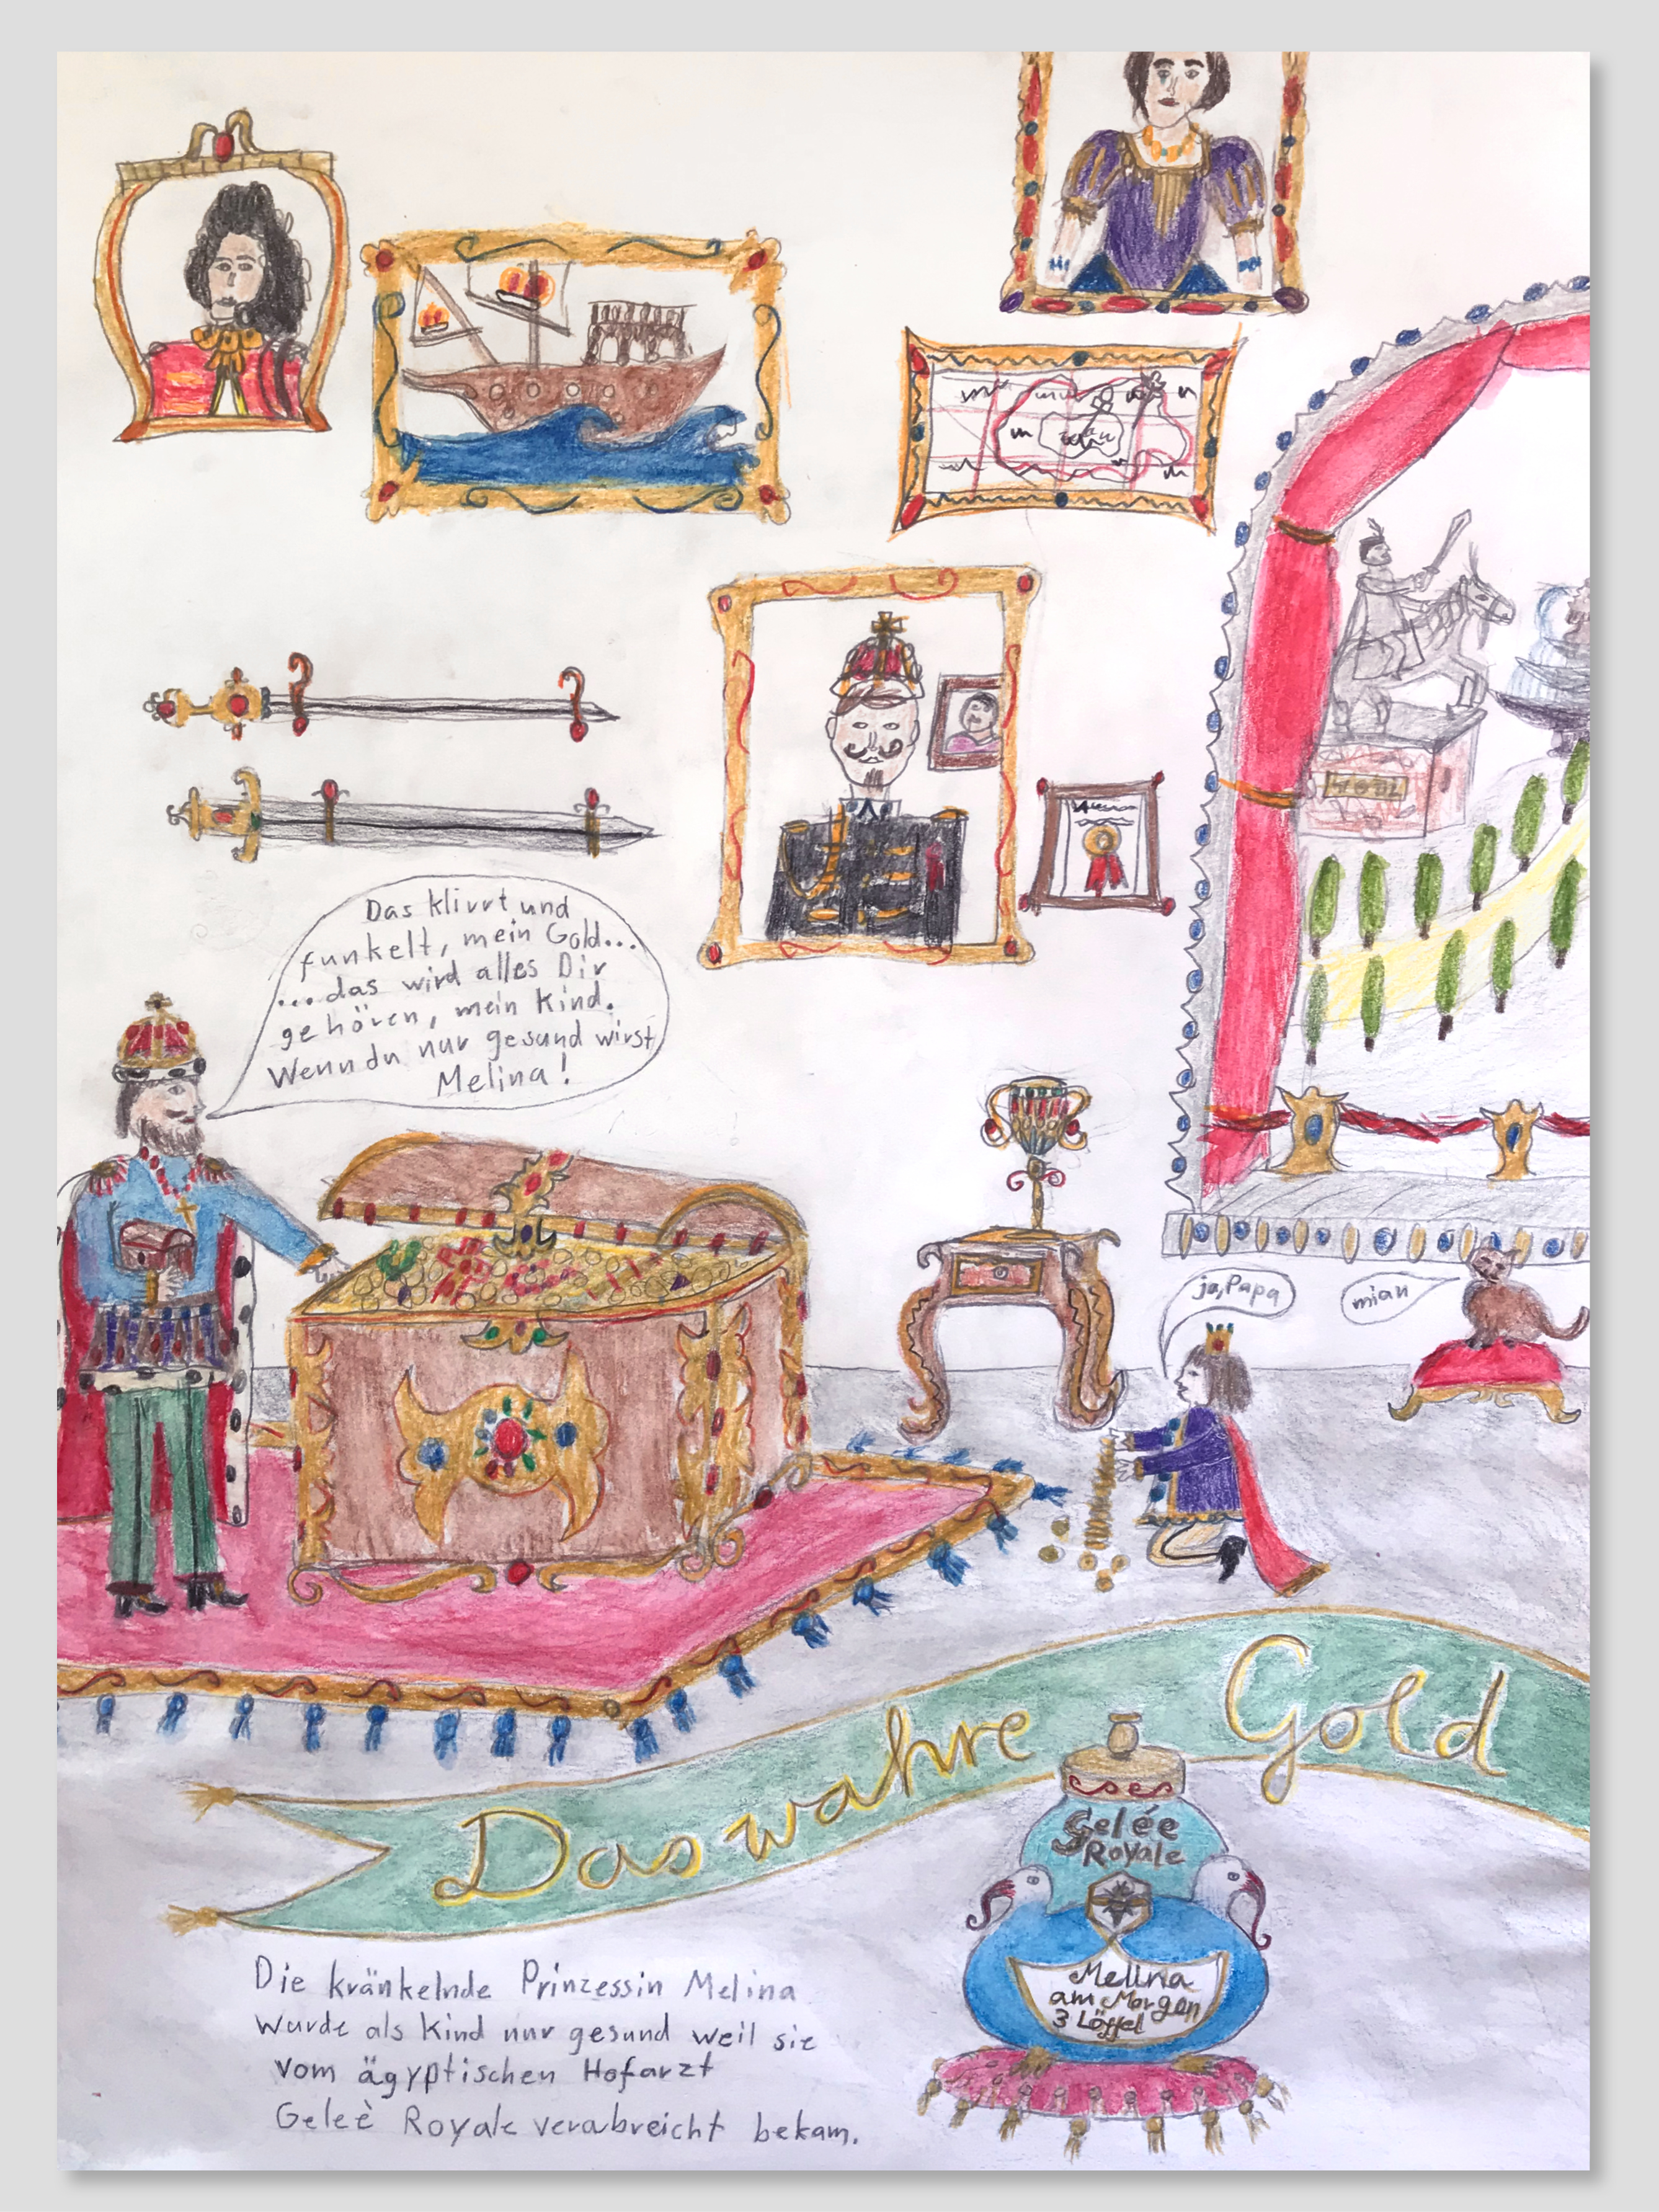 Das klirrt und
funkelt, mein Gold...
...das wird alles Dir
gehören, mein Kind.
Wenn du nur gesund wirst
Melina!
ja, Papa
miau
Das wahre Gold
Gelée
Royale
Melina
am Morgen
3 Löffel
Die kränkelnde Prinzessin Melina
wurde als Kind nur gesund weil sie
vom ägyptischen Hofarzt
Geleè Royale verabreicht bekam.